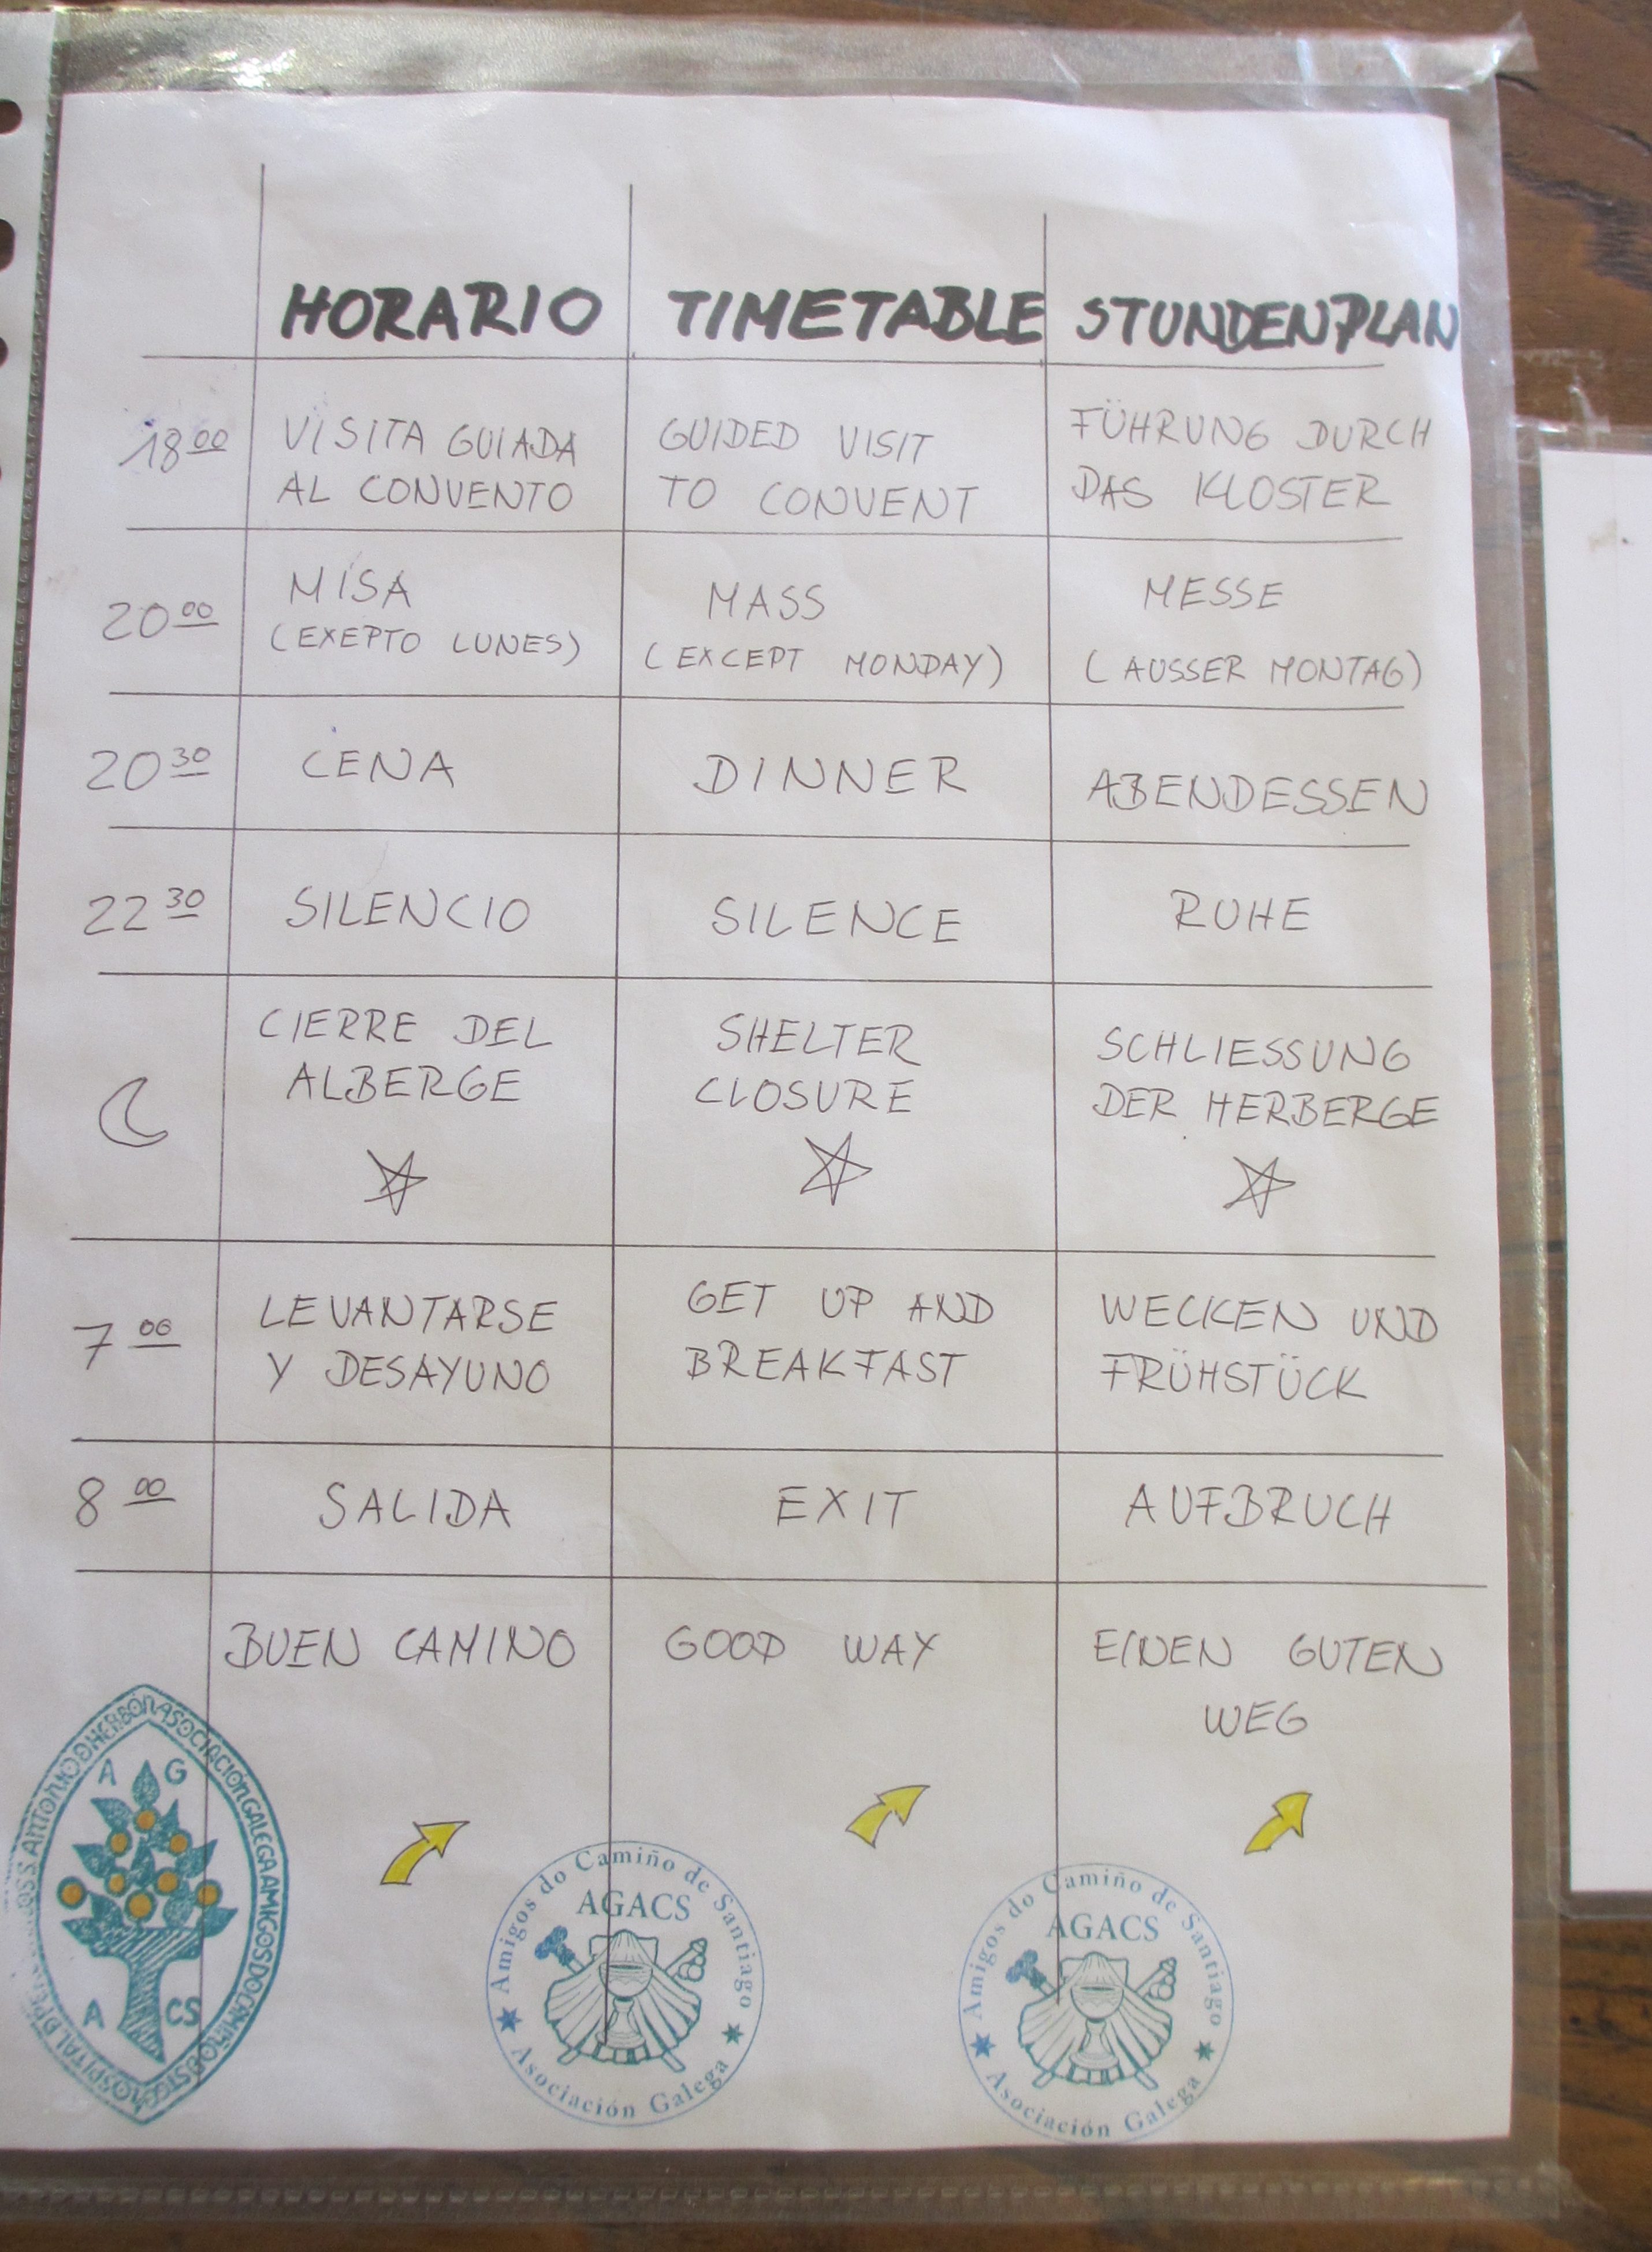 HORARIO TIMETABLE STUNDENPLAN
18 00
VISITA GUIADA
AL CONVENTO
GUIDED VISIT
TO CONVENT
FÜHRUNG DURCH
DAS KLOSTER
20 00
MISA
(EXEPTO LUNES)
MASS
(EXCEPT MONDAY)
MESSE
(AUSSER MONTAG)
20 30
CENA
DINNER
ABENDESSEN
22 30
SILENCIO
SILENCE
RUHE
CIERRE DEL
ALBERGE
SHELTER
CLOSURE
SCHLIESSUNG
DER HERBERGE
7 00
LEVANTARSE
Y DESAYUNO
GET UP AND
BREAKFAST
WECKEN UND
FRÜHSTÜCK
8 00
SALIDA
EXIT
AUFBRUCH
BUEN CAMINO
GOOD WAY
EINEN GUTEN
WEG
S. ANTONIO DE HERBÓN ASOCIACIÓN GALEGA AMIGOS DO CAMIÑO DE STGO HOSPITAL DE
A G
A CS
Amigos do Camiño de Santiago
AGACS
Asociación Galega
Amigos do Camiño de Santiago
AGACS
Asociación Galega